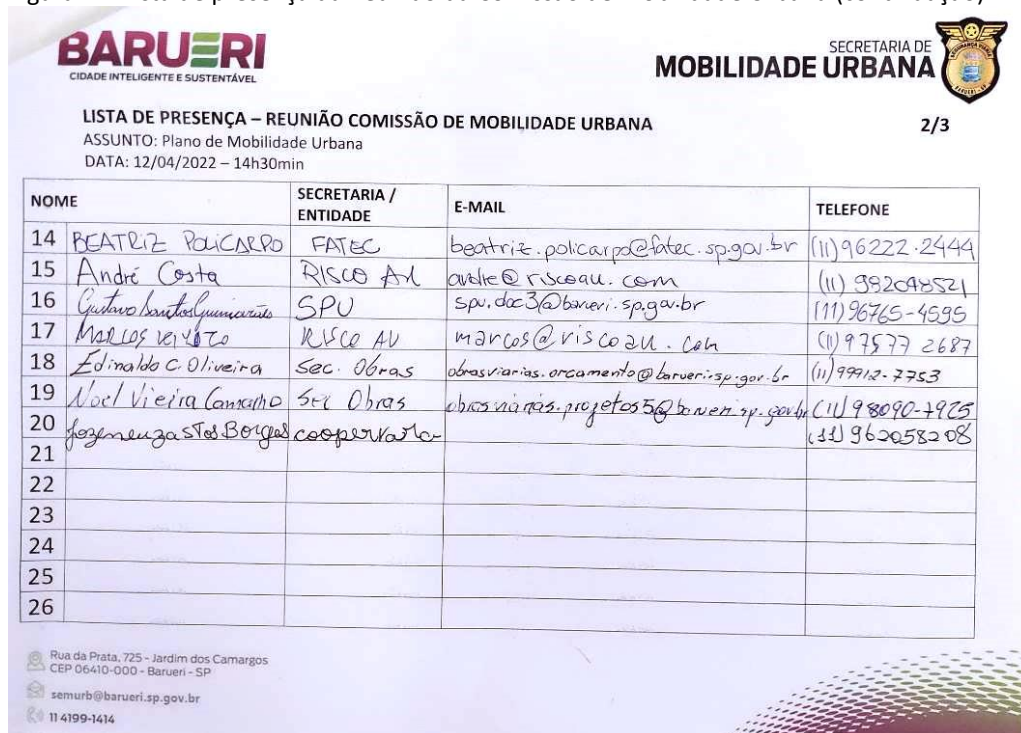 BARUERI
CIDADE INTELIGENTE E SUSTENTÁVEL
SECRETARIA DE
MOBILIDADE URBANA
LISTA DE PRESENÇA – REUNIÃO COMISSÃO DE MOBILIDADE URBANA 2/3
ASSUNTO: Plano de Mobilidade Urbana
DATA: 12/04/2022 – 14h30min
NOME SECRETARIA / ENTIDADE E-MAIL TELEFONE
14 BEATRIZ POLICARPO FATEC beatriz.policarpo@fatec.sp.gov.br (11)96222-2444
15 André Costa RISCO AU andre@riscoau.com (11) 982048521
16 Gustavo Santos Guimarães SPU spu.doc3@barueri.sp.gov.br (11)96765-4595
17 MARCOS RISCO AU marcos@riscoau.com (11) 97577 2687
18 Edinaldo C. Oliveira Sec. Obras obrasviarias.orcamento@barueri.sp.gov.br (11)99912-7753
19 Noel Vieira Camargo Sec Obras obrasviarias.projetos5@barueri.sp.gov.br (11) 98090-7925
20 Borges (11) 962058208
21
22
23
24
25
26
Rua da Prata, 725 - Jardim dos Camargos
CEP 06410-000 - Barueri - SP
semurb@barueri.sp.gov.br
11 4199-1414